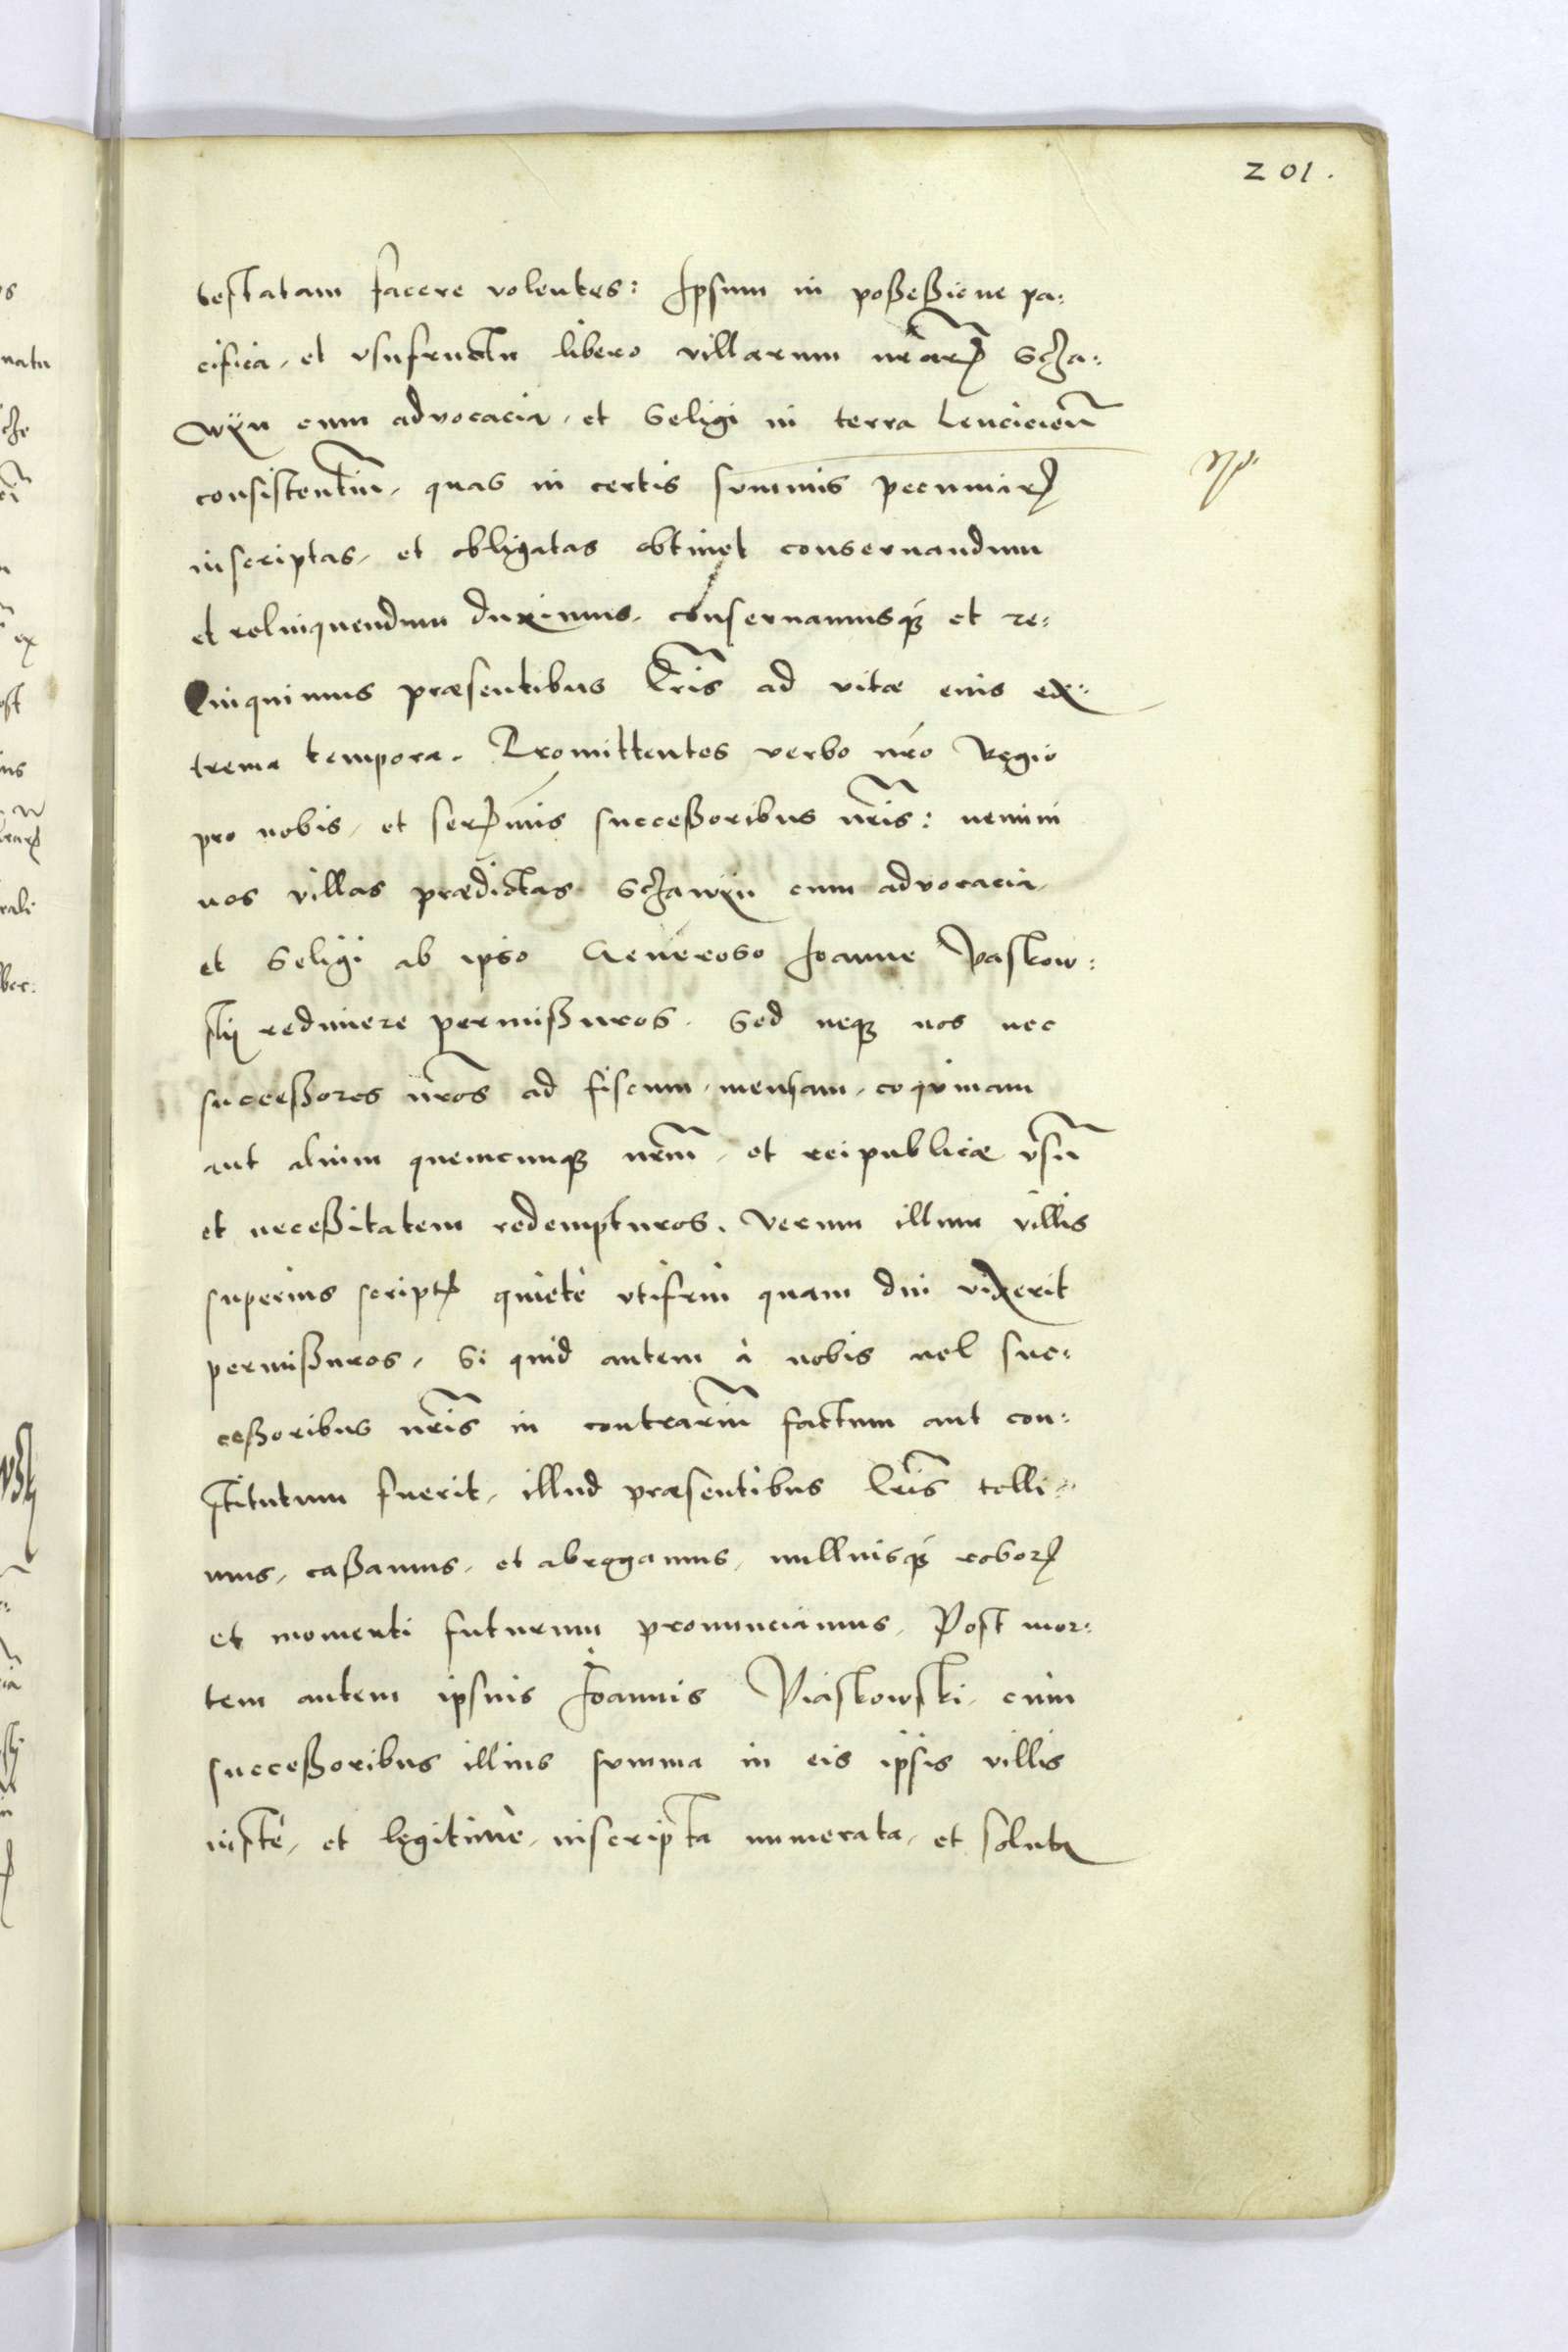 201.
testatam facere volentes: Ipsum in poßeßione pa:
cifica, et vsufructu libero villarum nrãrꝝ Scza:
wÿn cum advocacia, et Seligi in terra Lencicien̄
consistentiũ, quas in certis summis pecuniarꝝ
inscriptas, et obligatas obtinet conseruandum
et relinquendum duximus, conseruamusqꝫ et re:
linquimus præsentibus lr̃is ad vitæ eius ex:
trema tempora. Promittentes verbo nr̃o Regio
pro nobis, et serꝫmis succeßoribus nr̃is: nemini
nos villas prædictas Sczawÿn cum advocacia,
et Seligi ab ipso Generoso Joanne Paskow:
skÿ redimere permißuros. Sed neqꝫ nos nec
succeßores nr̃os ad fiscum, mensam, coquinam
aut alium quemcunqꝫ nr̃m, et reipublicæ vsũ
et neceßitatem redempturos. Verum illum villis
superius scriptꝭ quietè vtifrui quam diu vixerit
permißuros, Si quid autem à nobis vel suc:
ceßoribus nr̃is in contrariũ factum aut con:
stitutum fuerit, illud præsentibus lr̃is tolli:
mus, caßamus, et abrogamus, nulliusqꝫ roborꝭ
et momenti futurum pronunciamus, Post mor:
tem autem ipsius Joannis Piaskowski, cum
succeßoribus illius summa in eis ipsis villis
iustè, et legitimè, inscripta numerata, et soluta